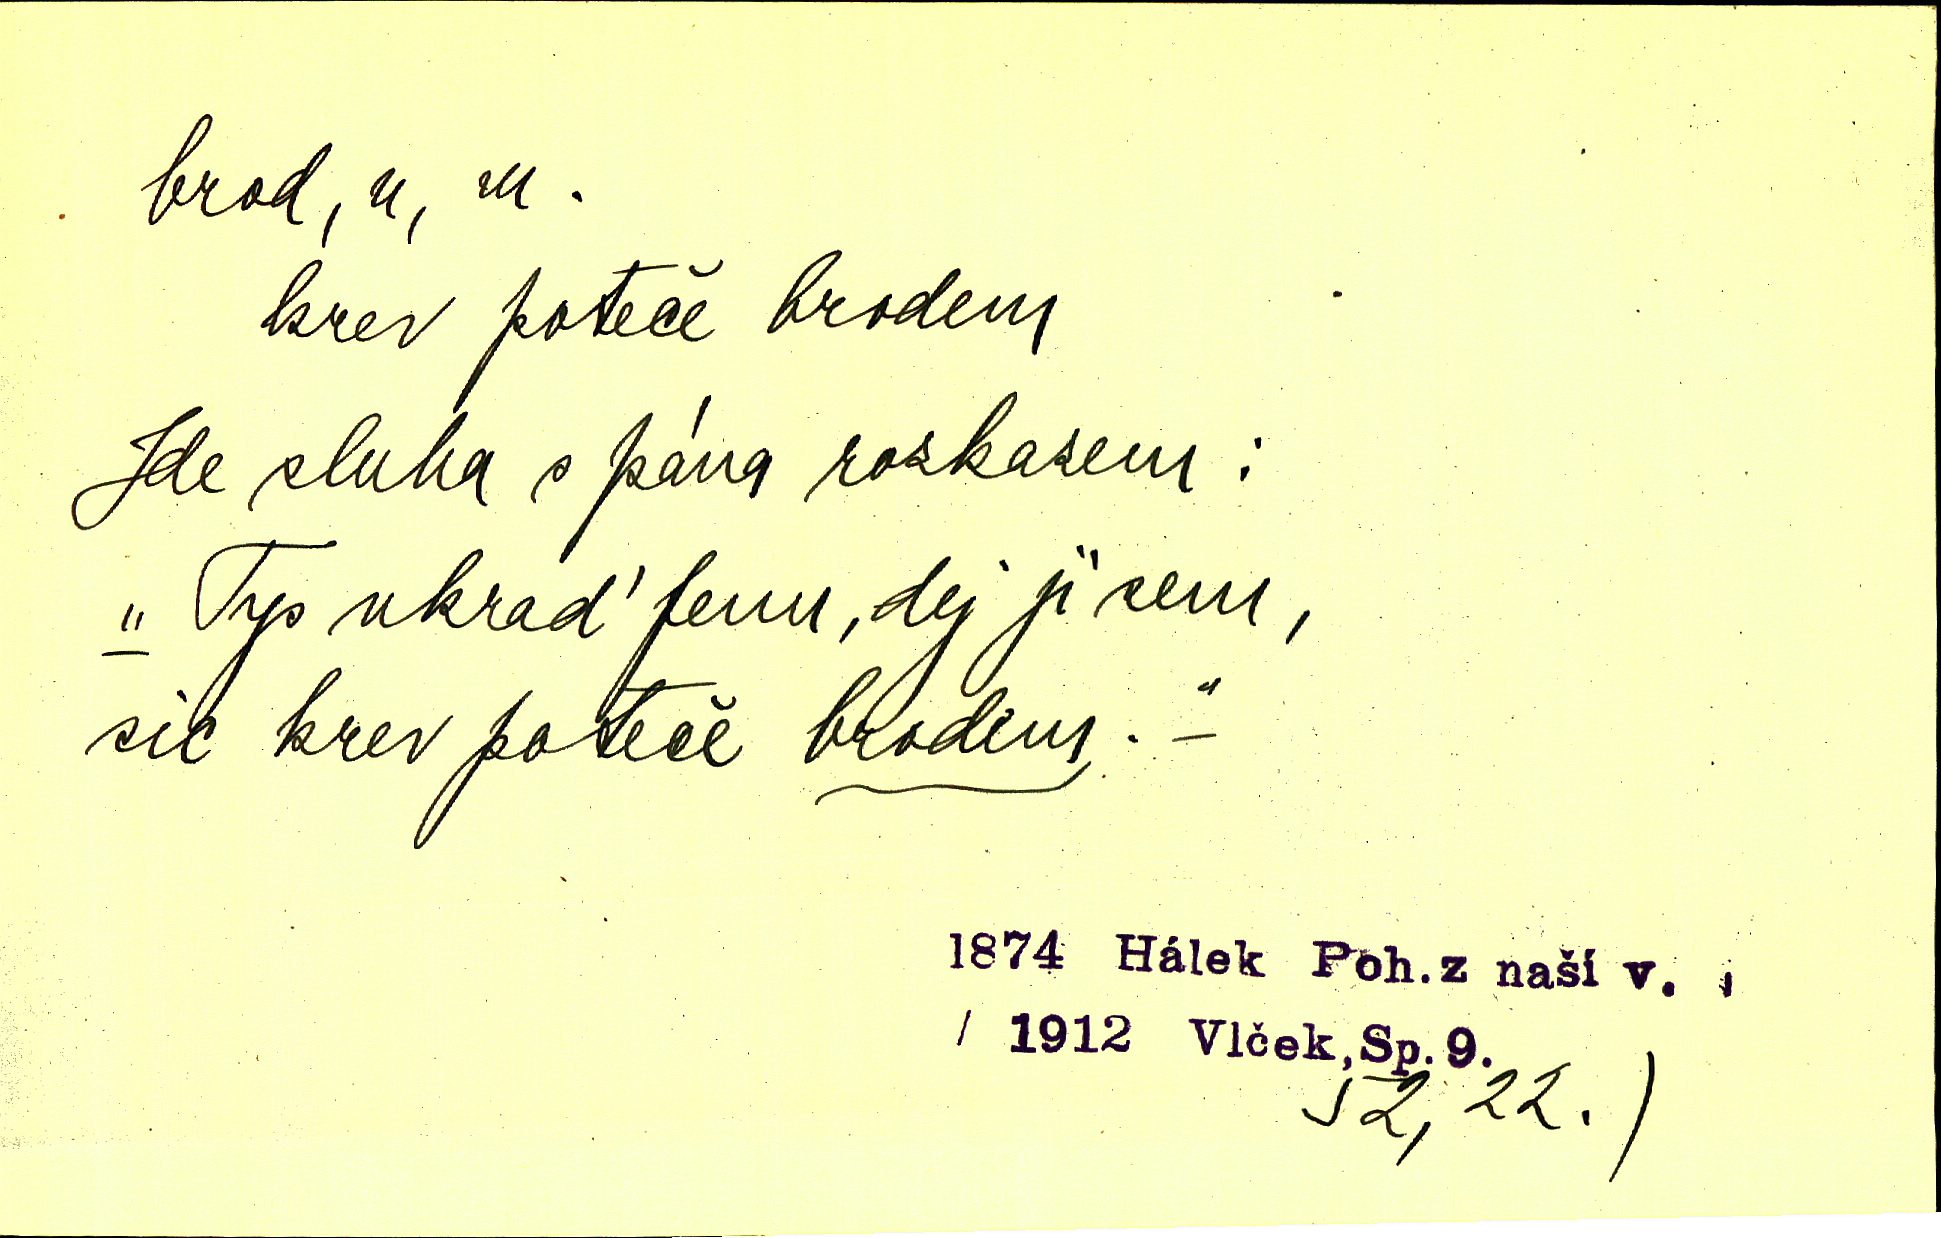 brod, u, m.
krev poteče brodem
Jde sluha s pána rozkazem:
„Tys ukrad' fenu, dej ji sem,
sic krev poteče brodem.“
1874 Hálek Poh. z naší v.
/ 1912 Vlček, Sp. 9.
52, 22.)